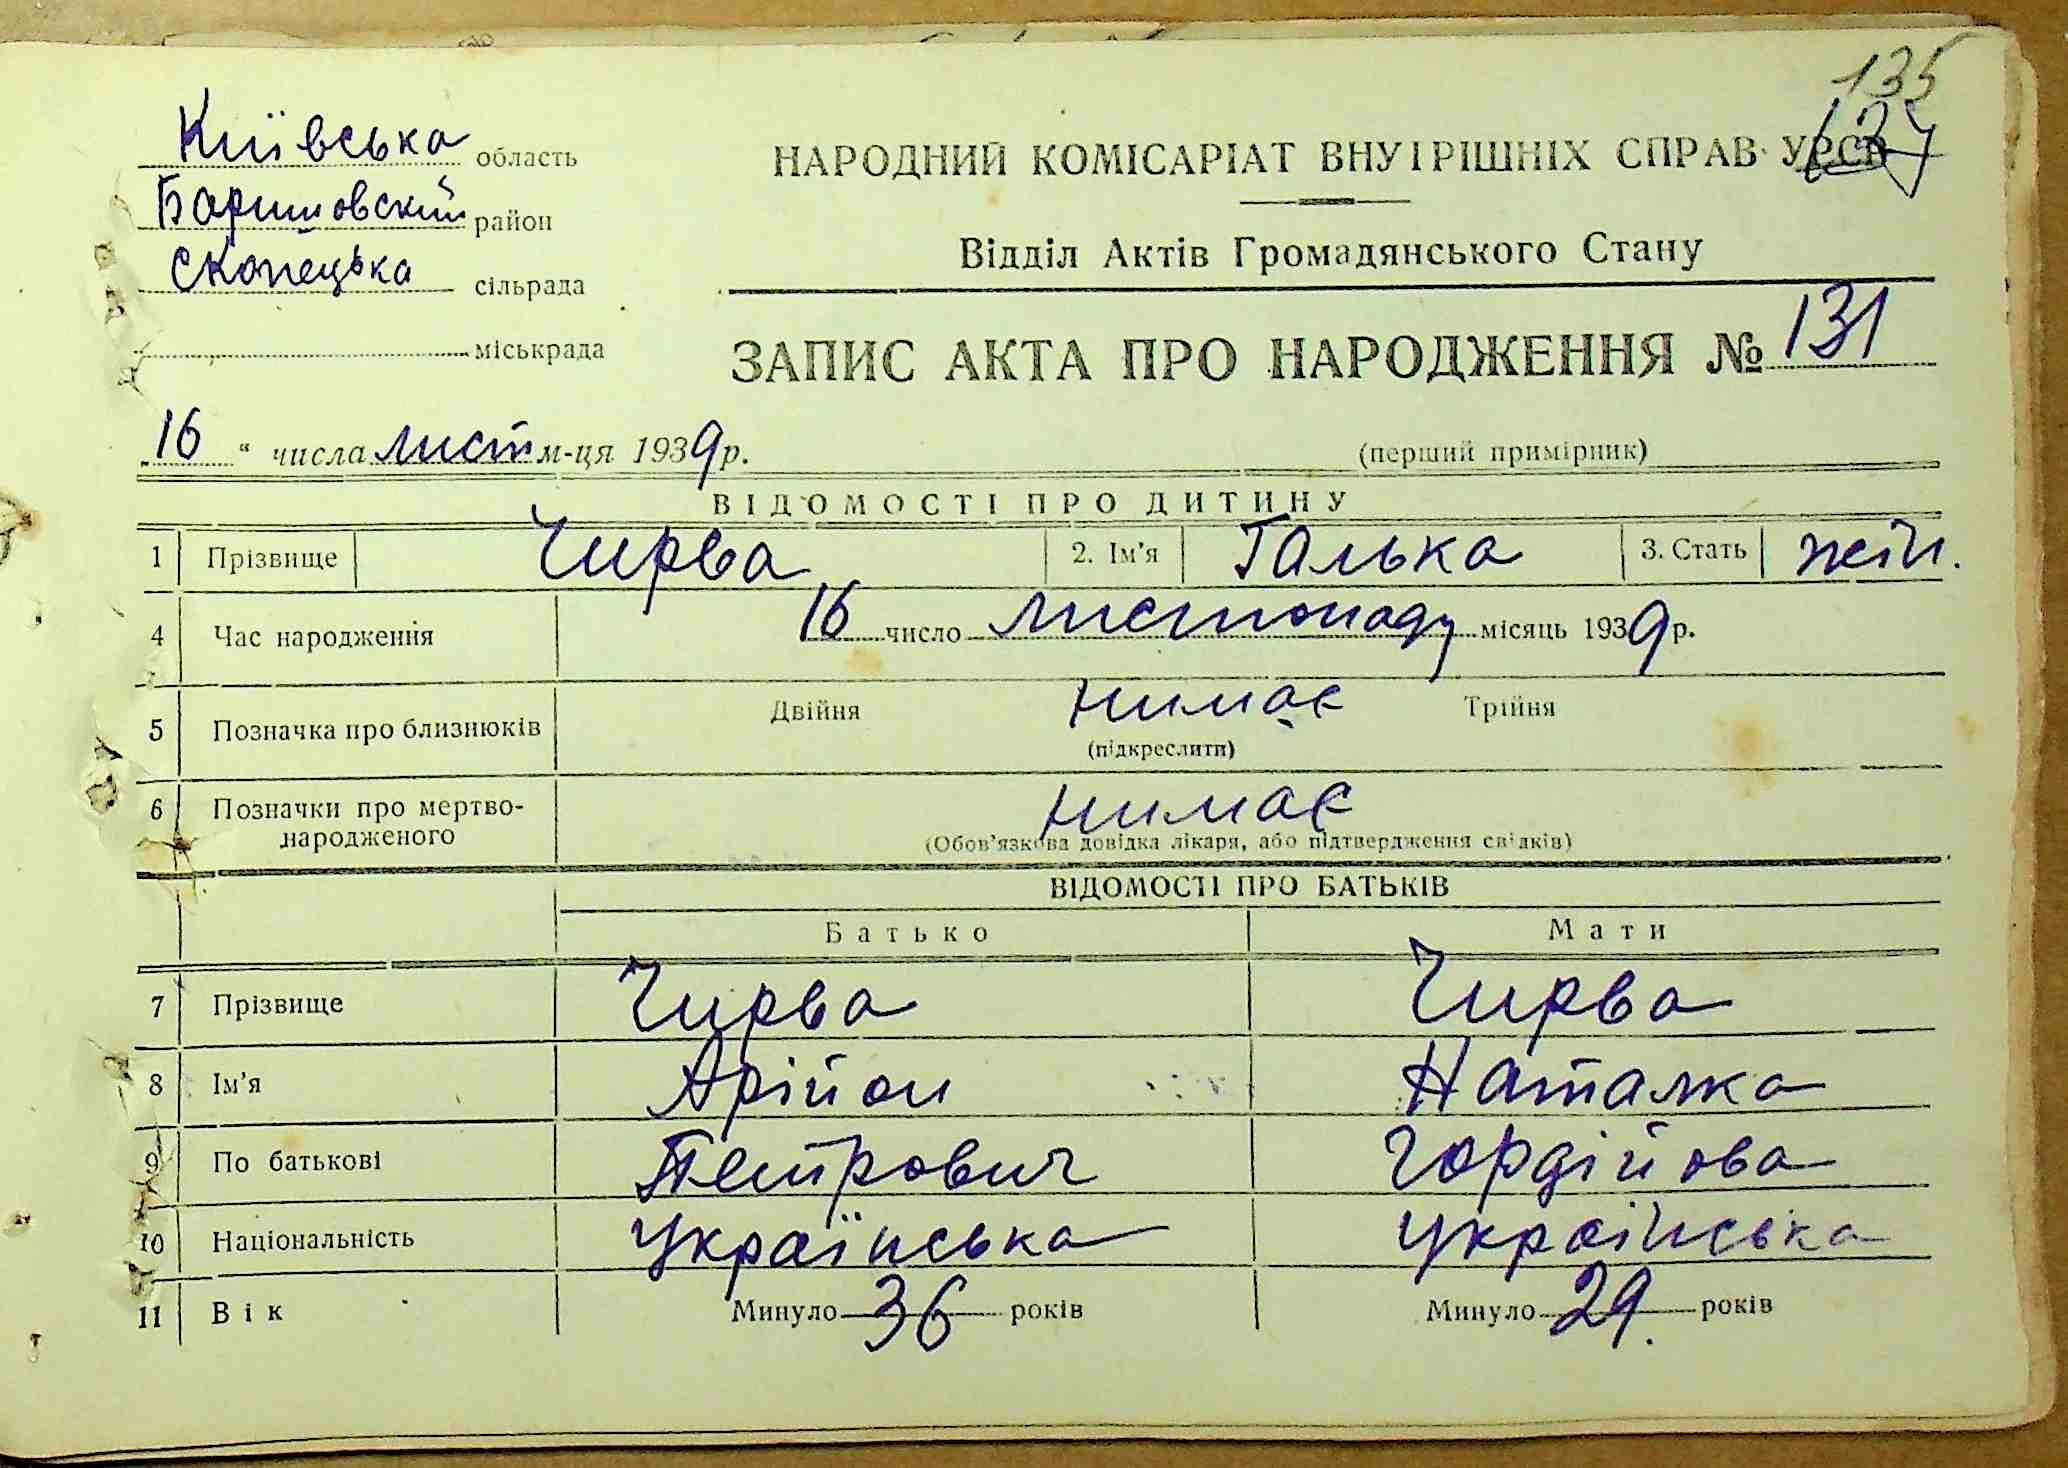 135
Київська область
Баришовский район
Скопецька сільрада
міськрада
НАРОДНИЙ КОМІСАРІАТ ВНУТРІШНІХ СПРАВ УРСР
Відділ Актів Громадянського Стану
ЗАПИС АКТА ПРО НАРОДЖЕННЯ № 131
„16“ числа лист м-ця 1939 р.
(перший примірник)
ВІДОМОСТІ ПРО ДИТИНУ
1 Прізвище Чирва 2. Ім'я Галька 3. Стать жін.
4 Час народження 16 число листопаду місяць 1939 р.
5 Позначка про близнюків Двійня нимає Трійня
(підкреслити)
6 Позначки про мертво-
народженого нимає
(Обов'язкова довідка лікаря, або підтвердження свідків)
ВІДОМОСТІ ПРО БАТЬКІВ
Батько Мати
7 Прізвище Чирва Чирва
8 Ім'я Арійон Наталка
9 По батькові Петрович Гордійова
10 Національність Українська Українська
11 Вік Минуло 36 років Минуло 29. років